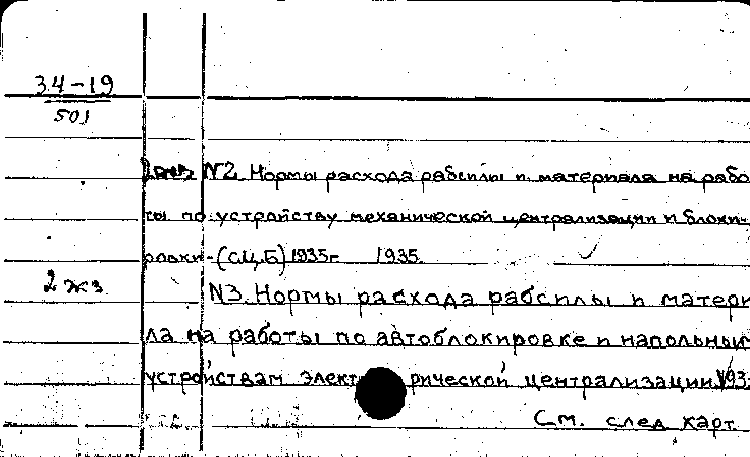 34-19
501
№2 Нормы расхода рабсилы и материала на рабо
ты по устройству механической централизации и блоки-
ровки-(СЦБ) 1935г 1935
2 экз. №3. Нормы расхода рабсилы и матери
ла на работы по автоблокировке и напольным
устройствам электрической централизации 193
См. след карт.